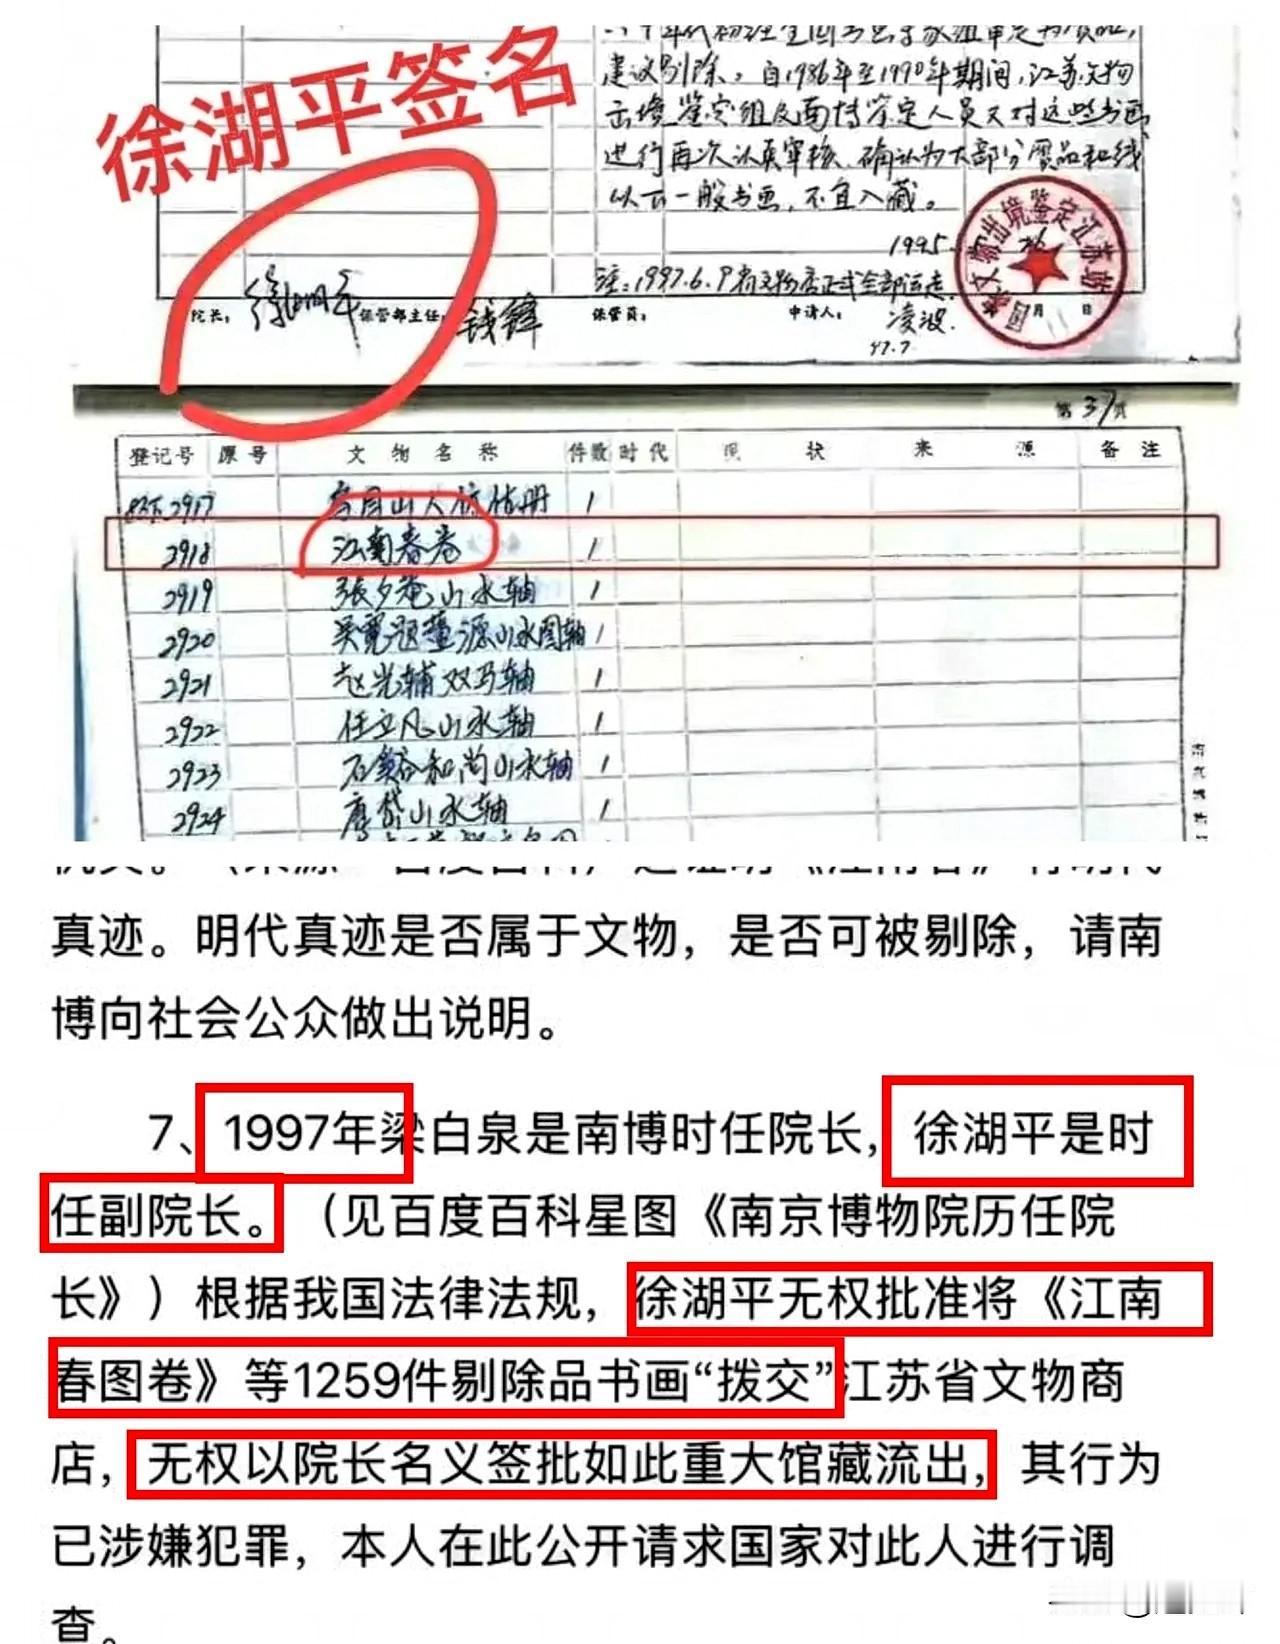 徐湖平签名
建议剔除。自1986年至1990年期间,江苏文物
出境鉴定组及南博鉴定人员又对这些书画
进行再次认真审核、确认为大部分赝品和线
以下一般书画,不宜入藏。
1995.
注:1997.6.9 全部运走
国家文物出境鉴定江苏站
月 日
院长: 徐湖平 保管部主任: 钱锋 保管员: 申请人: 凌波.
97.7
第 37 页
登记号 原号 文物名称 件数 时代 现状 来源 备注
2917 1
2918 江南春卷 1
2919 張夕菴山水轴 1
2920 山水图轴 1
2921 赵光辅双马轴 1
2922 任立凡山水轴 1
2923 石溪和尚山水轴 1
2924 山水轴 1
真迹。明代真迹是否属于文物,是否可被剔除,请南
博向社会公众做出说明。
7、1997年梁白泉是南博时任院长,徐湖平是时
任副院长。(见百度百科星图《南京博物院历任院
长》)根据我国法律法规,徐湖平无权批准将《江南
春图卷》等1259件剔除品书画“拨交”江苏省文物商
店,无权以院长名义签批如此重大馆藏流出,其行为
已涉嫌犯罪,本人在此公开请求国家对此人进行调
查。